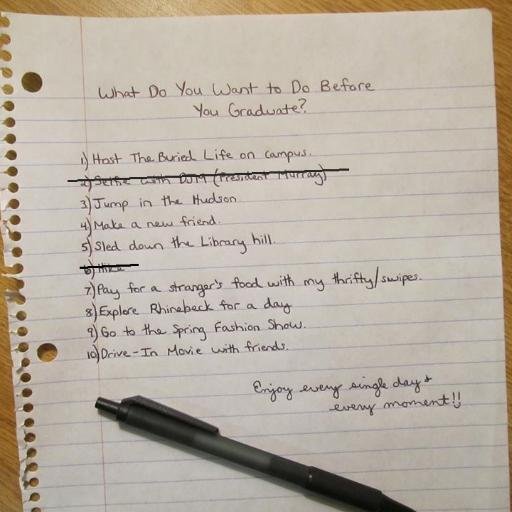 What Do You Want to Do Before
You Graduate?
1) Host The Buried Life on campus.
2) Selfie with DJM (President Murray)
3) Jump in the Hudson
4) Make a new friend.
5) Sled down the Library hill.
6) Hike
7) Pay for a stranger's food with my thrifty/swipes.
8) Explore Rhinebeck for a day
9) Go to the Spring Fashion Show.
10) Drive-In Movie with friends.
Enjoy every single day +
every moment!!